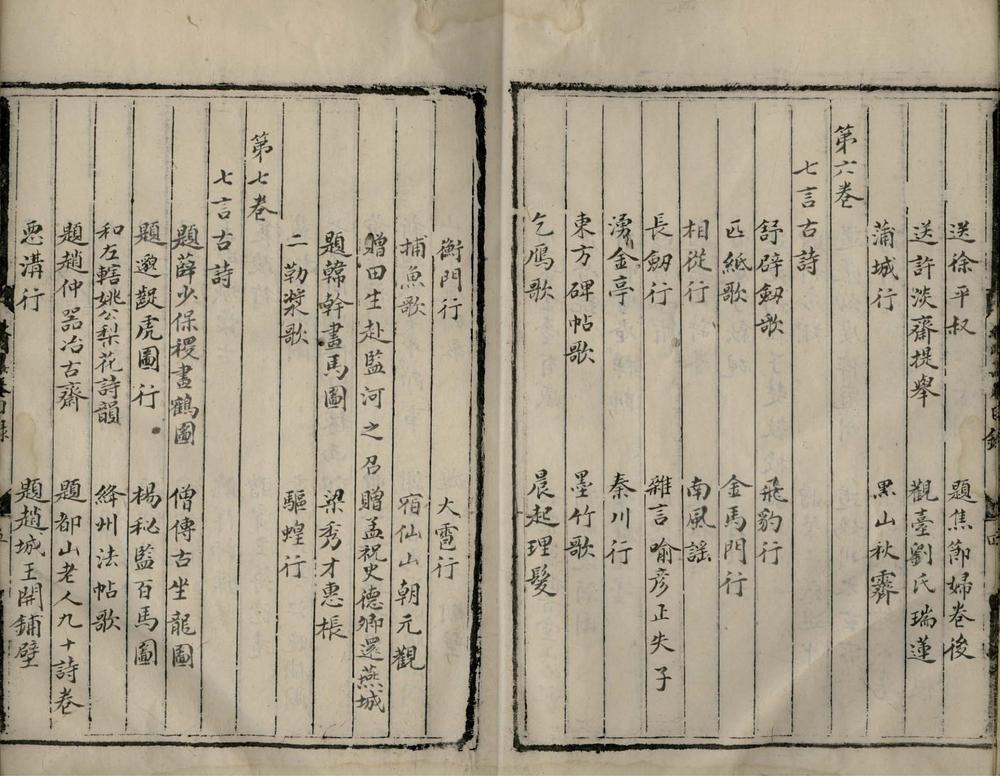 送徐平叔 題焦節婦卷後
送許淡齋提舉 觀臺劉氏瑞蓮
蒲城行 黑山秋霽
第六卷
七言古詩
舒辟劔歌 飛豹行
匹紙歌 金馬門行
相從行 南風謠
長劔行 雜言喻彥正失子
湧金亭 秦川行
東方碑帖歌 墨竹歌
乞鴈歌 晨起理髮
衡門行 大雹行
捕魚歌 宿仙山朝元觀
贈田生赴監河之召 贈孟祝史德卿還燕城
題韓幹畫馬圖 梁秀才惠棖
二勒漿歌 驅蝗行
第七卷
七言古詩
題薛少保稷畫鶴圖 僧傳古坐龍圖
題邈齪虎圖行 楊秘監百馬圖
和左轄姚公梨花詩韻 絳州法帖歌
題趙仲器冶古齋 題都山老人九十詩卷
惡溝行 題趙城王開鋪壁